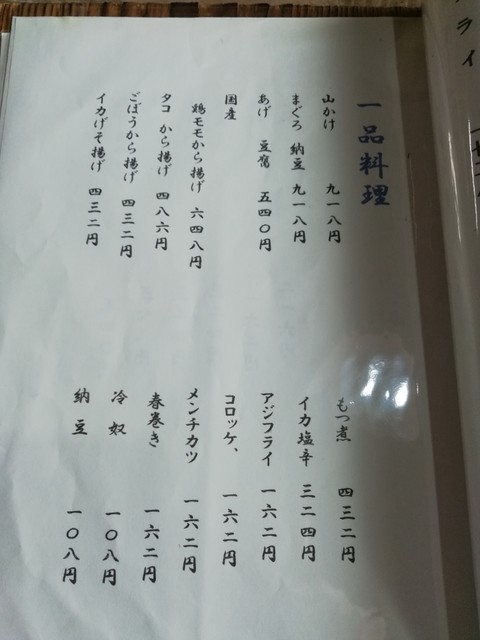 一品料理
山かけ 九一八円
まぐろ 納豆 九一八円
あげ 豆腐 五四〇円
国産
鶏モモから揚げ 六四八円
タコ から揚げ 四八六円
ごぼうから揚げ 四三二円
イカげそ揚げ 四三二円
もつ煮 四三二円
イカ塩辛 三二四円
アジフライ 一六二円
コロッケ、 一六二円
メンチカツ 一六二円
春巻き 一六二円
冷奴 一〇八円
納豆 一〇八円
フライ